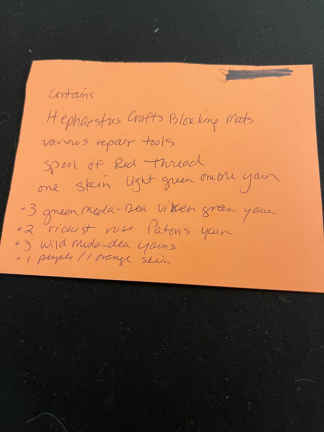 Contains
Hephaestus Crafts Blocking Mats
various repair tools
Spool of Red Thread
one skin light green ombre yarn
- 3 green Meda-Dea yarn
- 2 rust Patons yarn
- 3 wild Meda-dea yarns
- 1 purple // 1 orange skein